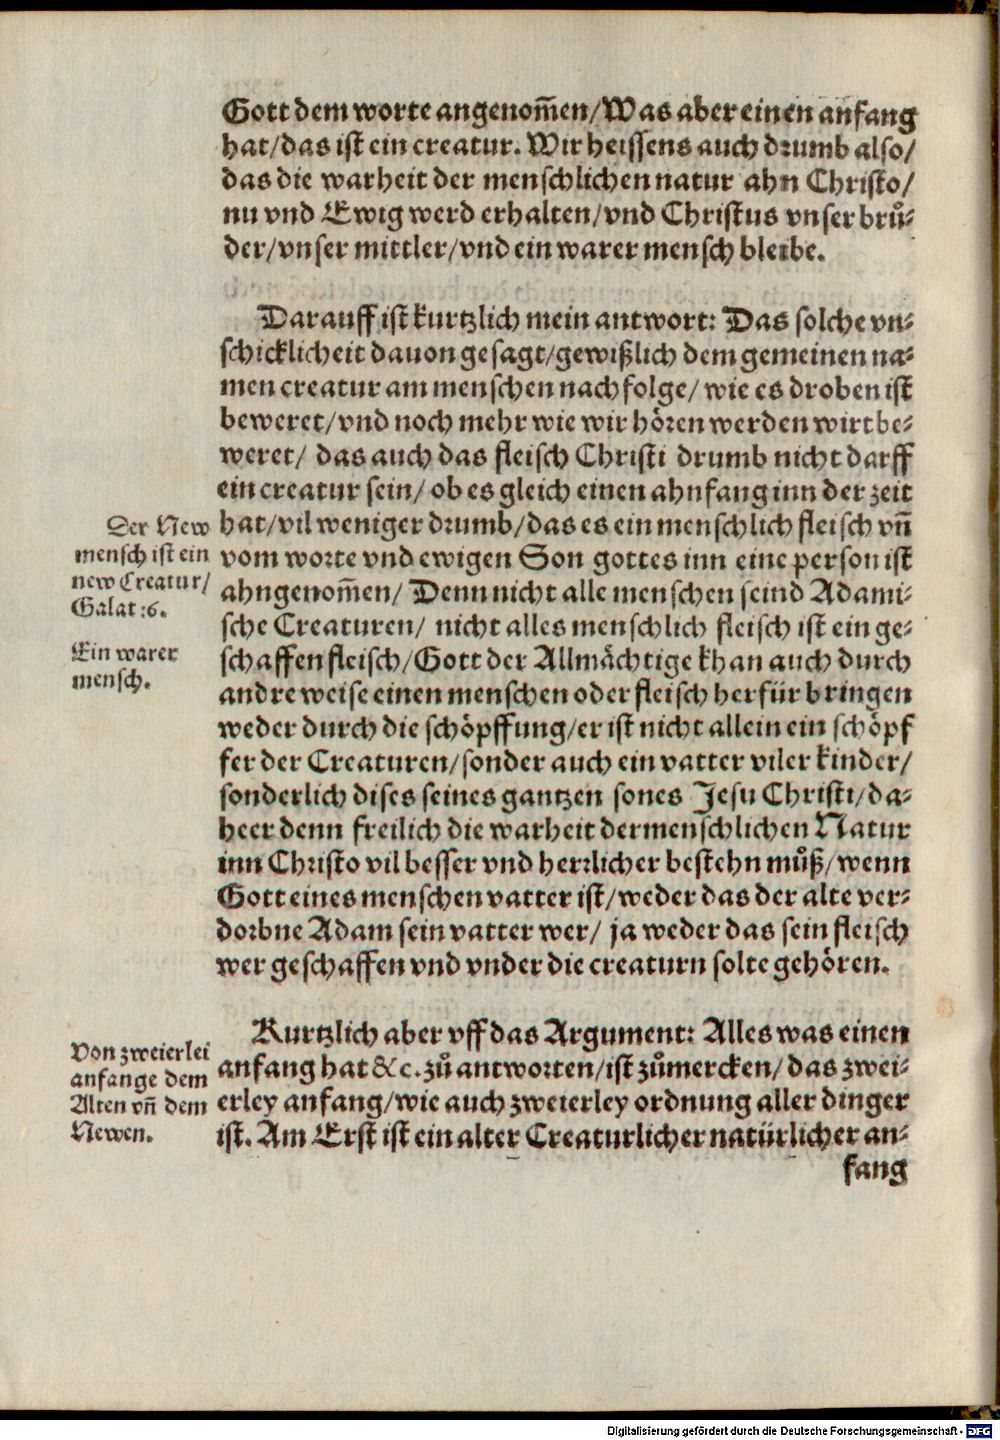 Gott dem worte angenom̃en/Was aber einen anfang
hat/das ist ein creatur. Wir heissens auch drumb also/
das die warheit der menschlichen natur ahn Christo/
nu vnd Ewig werd erhalten/vnd Christus vnser brů⸗
der/vnser mittler/vnd ein warer mensch bleibe.
Darauff ist kurtzlich mein antwort: Das solche vn⸗
schicklicheit dauon gesagt/gewißlich dem gemeinen na⸗
men creatur am menschen nachfolge/ wie es droben ist
beweret/vnd noch mehr wie wir hören werden wirt be⸗
weret/ das auch das fleisch Christi drumb nicht darff
ein creatur sein/ ob es gleich einen ahnfang inn der zeit
hat/vil weniger drumb/das es ein menschlich fleisch vñ
vom worte vnd ewigen Son gottes inn eine person ist
ahngenom̃en/ Denn nicht alle menschen seind Adami⸗
sche Creaturen/ nicht alles menschlich fleisch ist ein ge⸗
schaffen fleisch/Gott der Allmächtige khan auch durch
andre weise einen menschen oder fleisch herfür bringen
weder durch die schöpffung/er ist nicht allein ein schöpf
fer der Creaturen/sonder auch ein vatter viler kinder/
sonderlich dises seines gantzen sones Jesu Christi/da⸗
heer denn freilich die warheit der menschlichen Natur
inn Christo vil besser vnd herrlicher bestehn můß/wenn
Gott eines menschen vatter ist/weder das der alte ver⸗
dorbne Adam sein vatter wer/ ja weder das sein fleisch
wer geschaffen vnd vnder die creaturn solte gehören.
Kurtzlich aber vff das Argument: Alles was einen
anfang hat &c. zů antworten/ist zůmercken/das zwei⸗
erley anfang/wie auch zweierley ordnung aller dinger
ist. Am Erst ist ein alter Creaturlicher natürlicher an⸗
fang
Der New
mensch ist ein
new Creatur/
Galat:6.
Ein warer
mensch.
Von zweierlei
anfange dem
Alten vñ dem
Newen.
Digitalisierung gefördert durch die Deutsche Forschungsgemeinschaft - DFG